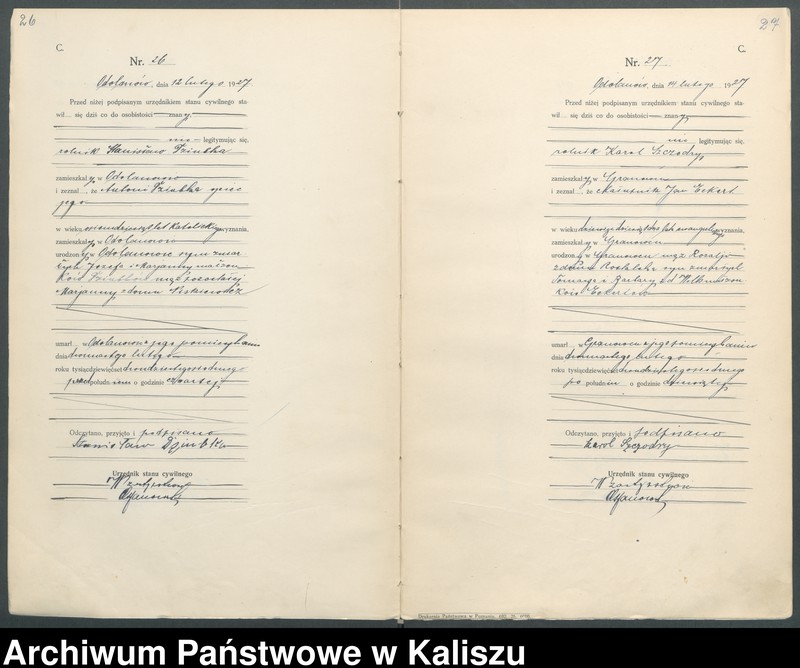 26
C.
Nr. 26
Odolanów, dnia 12 lutego 1927
Przed niżej podpisanym urzędnikiem stanu cywilnego sta-
wił się dziś co do osobistości znany
nie legitymując się,
rolnik Stanisław
zamieszkały w Odolanowie
i zeznał, że Antoni ojciec
jego
w wieku osiemdziesiąt lat katolickiego wyznania,
zamieszkały w Odolanowie
urodzony w Odolanowie syn zmar-
łych Józefa i Maryanny małżon-
ków mąż pozostałej
Maryanny z domu
umarł w Odolanowie w jego pomieszkaniu
dnia dwunastego lutego
roku tysiącdziewięćset dwudziestegosiódmego
przed południem o godzinie czwartej
Odczytano, przyjęto i podpisano
Stanisław
Urzędnik stanu cywilnego
W zastępstwie
27
C.
Nr. 27
Odolanów, dnia 14 lutego 1927
Przed niżej podpisanym urzędnikiem stanu cywilnego sta-
wił się dziś co do osobistości znany
nie legitymując się,
rolnik Karol Szczodry
zamieszkały w
i zeznał, że Jan Eckert
w wieku lat wyznania,
zamieszkały w
urodzony w mąż Rozalji
z domu syn zmarłych
Tomasza i Barbary małżon-
ków Eckertów
umarł w w jego pomieszkaniu
dnia dwunastego lutego
roku tysiącdziewięćset dwudziestegosiódmego
po południu o godzinie dziewiątej
Odczytano, przyjęto i podpisano
Karol Szczodry
Urzędnik stanu cywilnego
W zastępstwie
Drukarnia Państwowa w Poznaniu
Archiwum Państwowe w Kaliszu